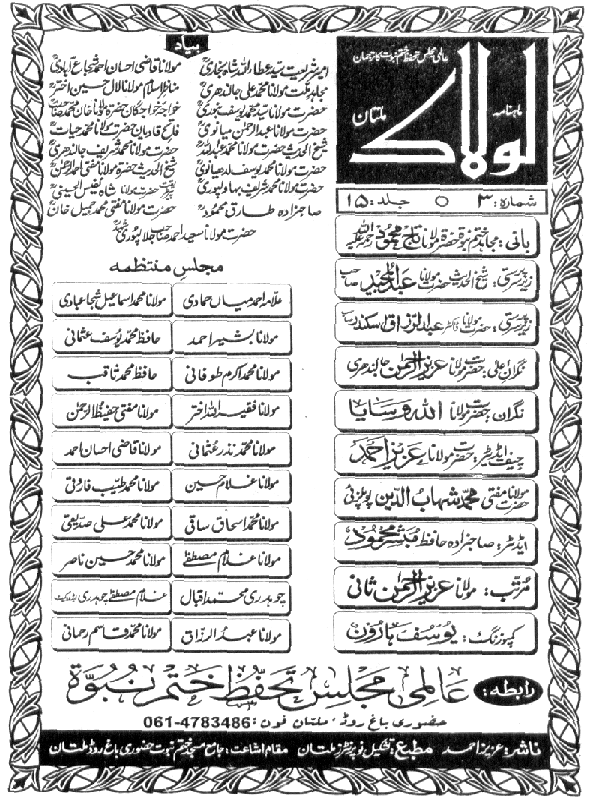 عالمی مجلس تحفظ ختم نبوت کا ترجمان
ماہنامہ
لولاک
ملتان
شمارہ: ۳ ○ جلد: ۱۵
بانی: مجاہد ختم نبوۃ حضرت مولانا تاج محمود رحمۃ اللہ علیہ
زیر سرپرستی: شیخ الحدیث حضرت مولانا عبدالمجید صاحب
زیر سرپرستی: حضرت مولانا ڈاکٹر عبدالرزاق سکندر
نگران اعلیٰ: حضرت مولانا عزیز الرحمن جالندھری
نگران: حضرت مولانا اللہ وسایا
چیف ایڈیٹر: حضرت مولانا عزیز احمد
حضرت مولانا مفتی محمد شہاب الدین پوپلزئی
ایڈیٹر: صاحبزادہ حافظ مبشر محمود
مرتب: مولانا عزیز الرحمن ثانی
کمپوزنگ: یوسف ہارون
بیاد
امیر شریعت سید عطاء اللہ شاہ بخاری
مولانا قاضی احسان احمد شجاع آبادی
مجاہد ملت مولانا محمد علی جالندھری
مناظر اسلام مولانا لال حسین اختر
حضرت مولانا سید محمد یوسف بنوری
خواجہ خواجگان حضرت مولانا خان محمد
حضرت مولانا عبدالرحمن میانوی
فاتح قادیان حضرت مولانا محمد حیات
شیخ الحدیث حضرت مولانا محمد عبداللہ
حضرت مولانا محمد شریف جالندھری
حضرت مولانا محمد یوسف لدھیانوی
شیخ الحدیث حضرت مولانا مفتی احمد الرحمن
حضرت مولانا محمد شریف بہاولپوری
حضرت مولانا شاہ نفیس الحسینی
صاحبزادہ طارق محمود
حضرت مولانا مفتی محمد جمیل خان
حضرت مولانا سعید احمد جلالپوری
مجلس منتظمہ
علامہ احمد میاں حمادی
مولانا محمد اسماعیل شجاعبادی
مولانا بشیر احمد
حافظ محمد یوسف عثمانی
مولانا محمد اکرم طوفانی
حافظ محمد ثاقب
مولانا فقیر اللہ اختر
مولانا مفتی حفیظ الرحمن
مولانا محمد نذر عثمانی
مولانا قاضی احسان احمد
مولانا غلام حسین
مولانا محمد طیب فاروقی
مولانا محمد اسحاق ساقی
مولانا محمد علی صدیقی
مولانا غلام مصطفےٰ
مولانا محمد حسین ناصر
چوہدری محمد اقبال
غلام مصطفےٰ چوہدری
مولانا عبدالرزاق
مولانا محمد قاسم رحمانی
رابطہ: عالمی مجلس تحفظ ختم نبوۃ
حضوری باغ روڈ، ملتان فون: 061-4783486
ناشر: عزیز احمد مطبع: تشکیل نو پرنٹرز ملتان مقام اشاعت: جامع مسجد ختم نبوت حضوری باغ روڈ ملتان